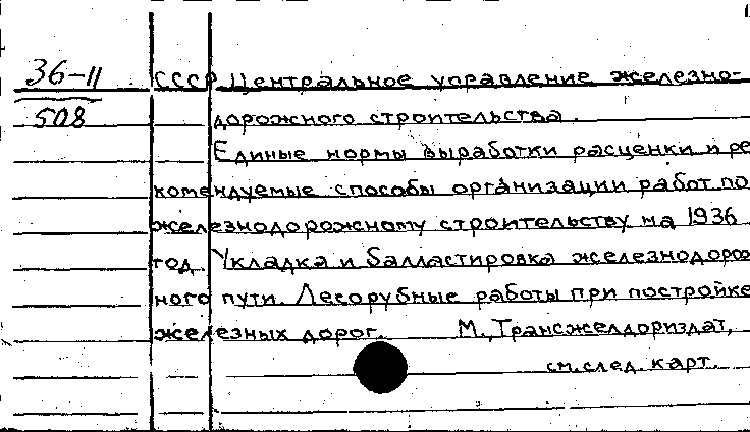 36-11
508
СССР Центральное управление железно-
дорожного строительства.
Единые нормы выработки расценки и ре
комендуемые способы организации работ по
железнодорожному строительству на 1936
год. Укладка и балластировка железнодорож
ного пути. Лесорубные работы при постройке
железных дорог. М., Трансжелдориздат,
см. след. карт.